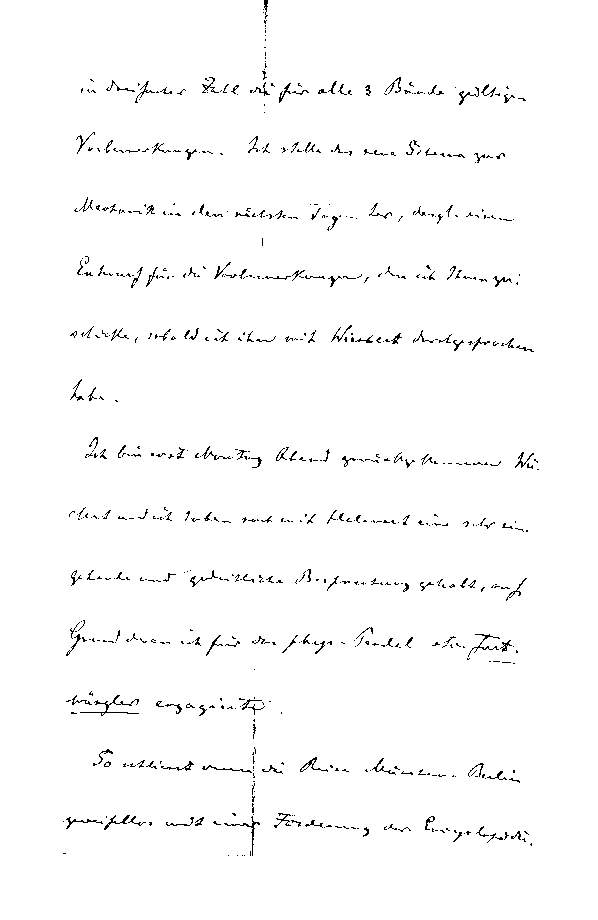 in dreifacher Zahl die für alle 3 Bände gültigen
Vorbemerkungen. Ich stelle das neue Schema zur
Mechanik in den nächsten Tagen her, desgl. einen
Entwurf für die Vorbemerkungen, den ich Ihnen zu-
schicke, sobald ich ihn mit Wiechert durchgesprochen
habe.
Ich bin erst Montag Abend zurückgekommen. Wie-
chert und ich haben noch mit Helmert eine sehr ein-
gehende und gedeihliche Besprechung gehabt, auf
Grund deren ich für das phys. Pendel etc. Furt-
wängler engagierte.
So schliesst denn die Reise München-Berlin
zweifellos mit einer Förderung der Encyclopädie.